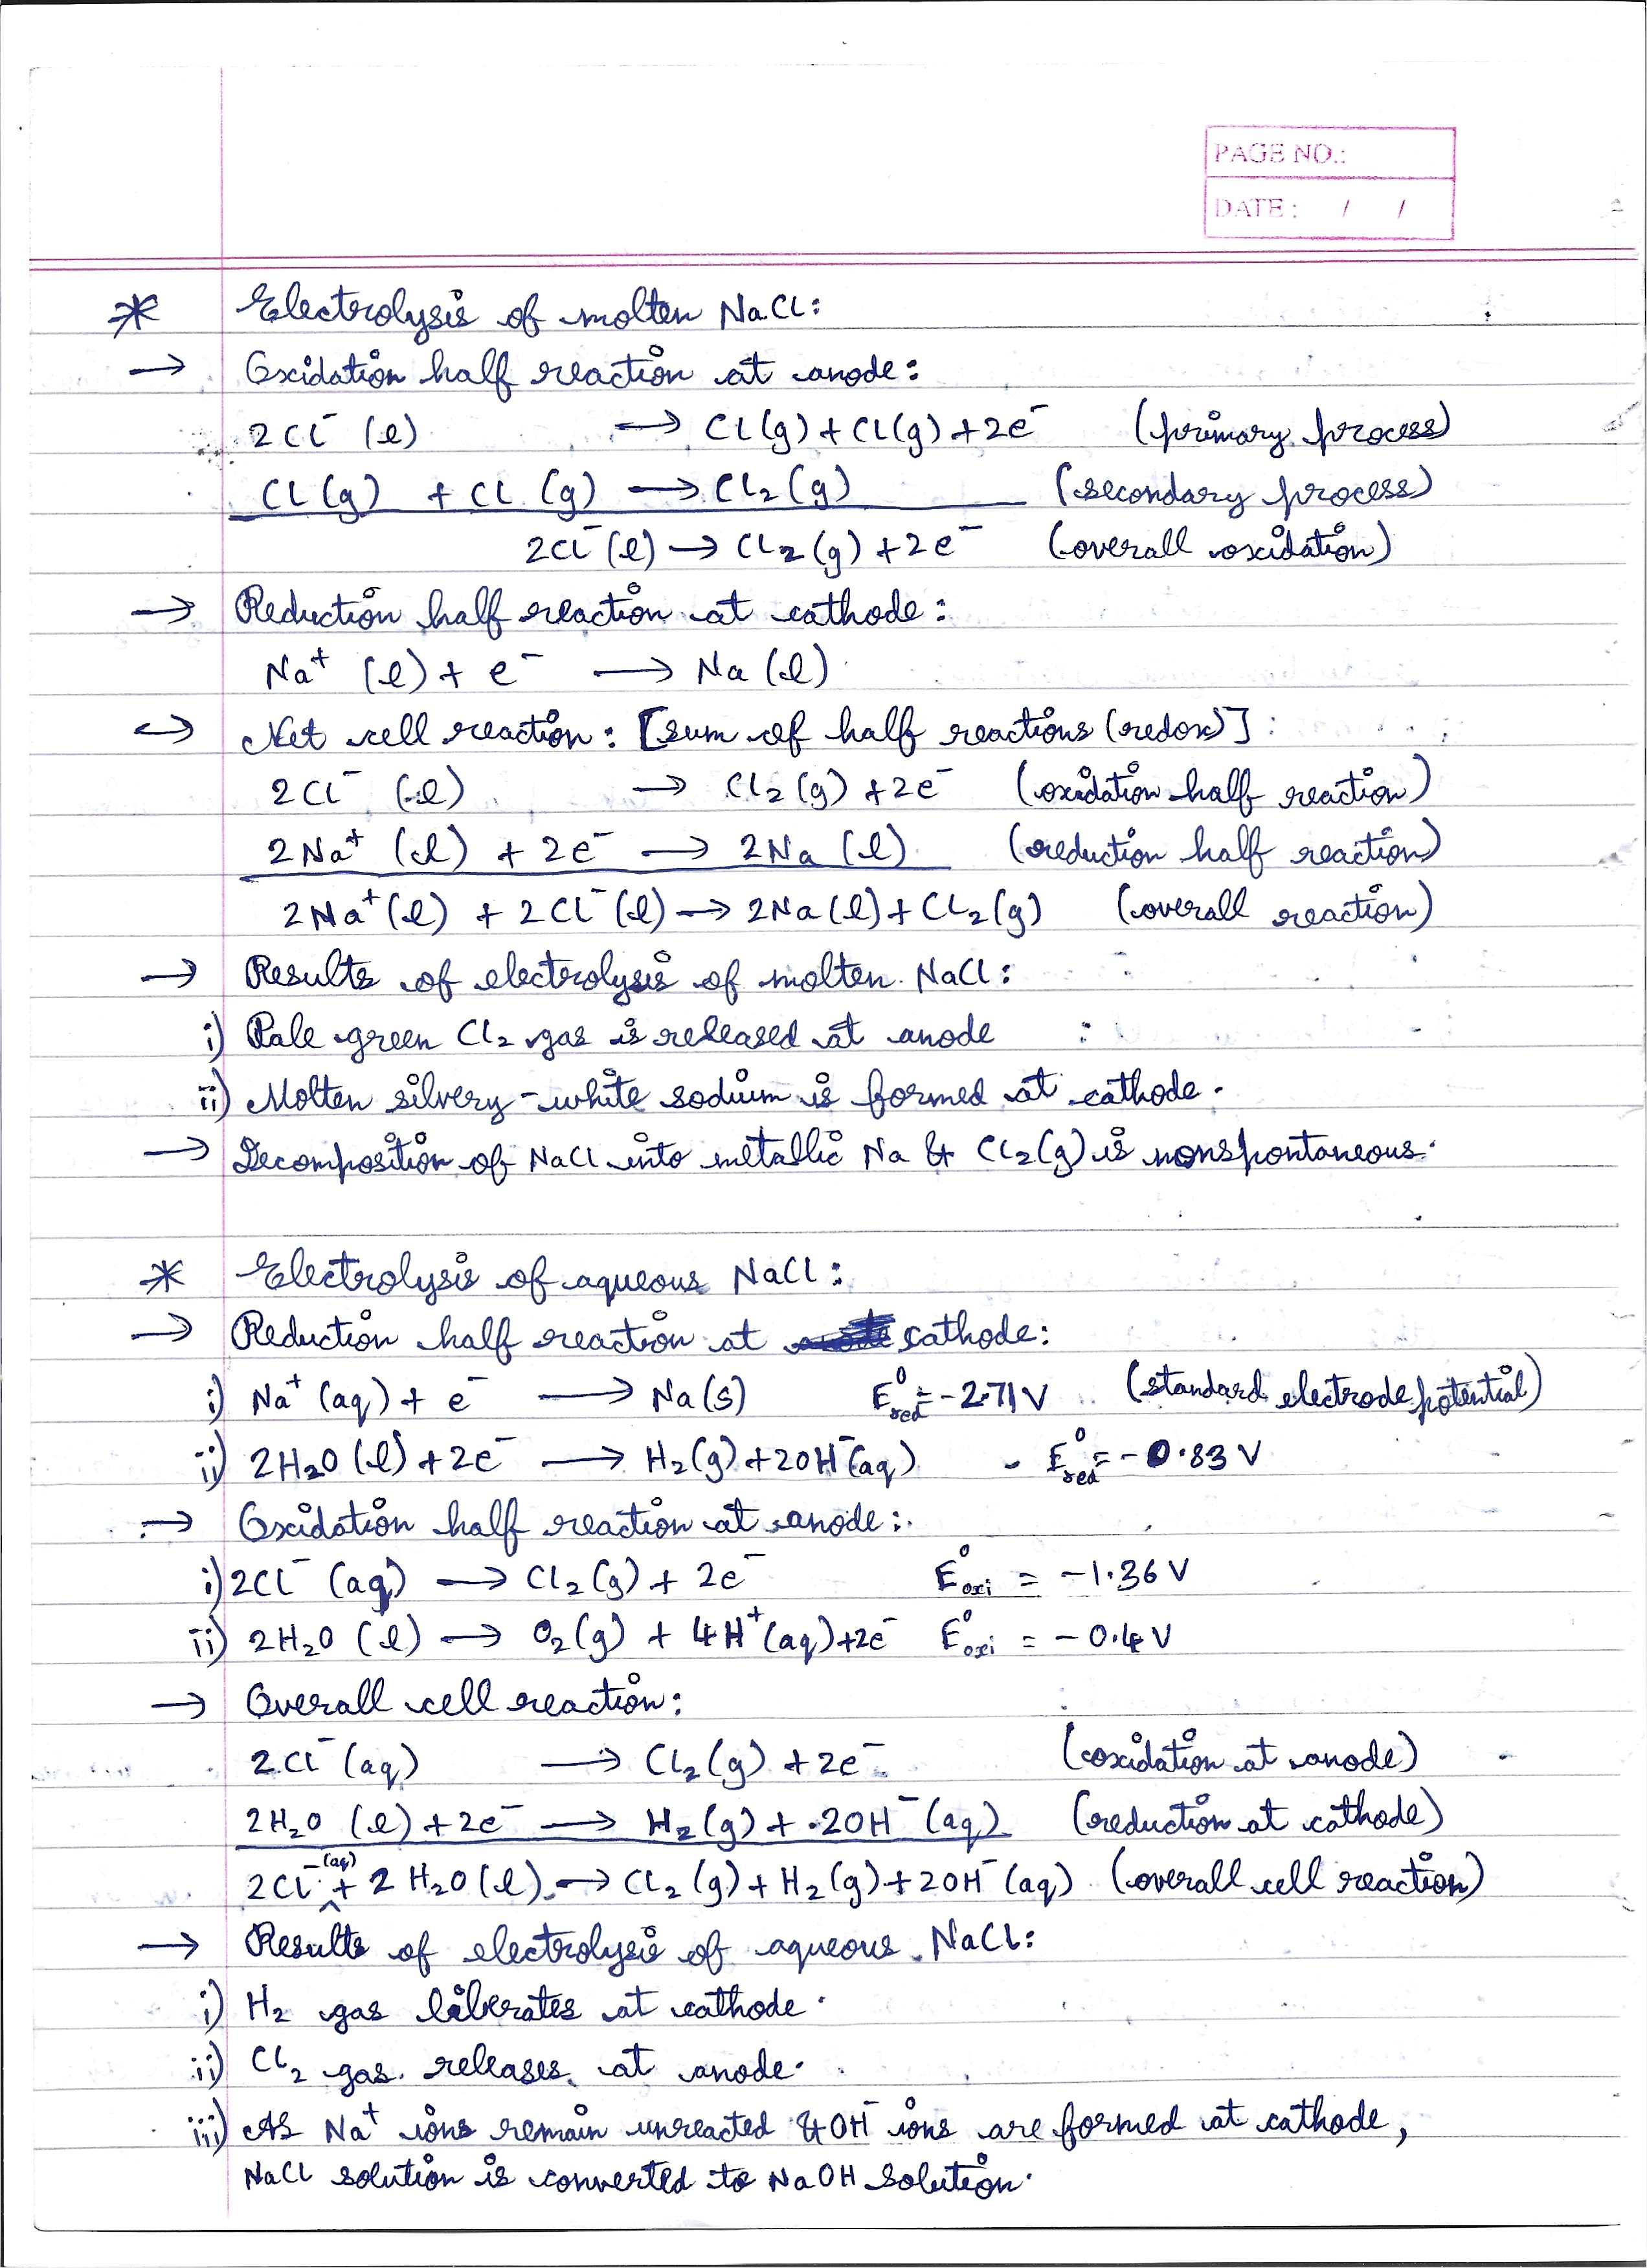 PAGE NO.:
DATE: / /
* Electrolysis of molten NaCl:
→ Oxidation half reaction at anode:
2Cl⁻ (l) → Cl(g) + Cl(g) + 2e⁻ (primary process)
Cl(g) + Cl(g) → Cl₂(g) (secondary process)
2Cl⁻(l) → Cl₂(g) + 2e⁻ (overall oxidation)
→ Reduction half reaction at cathode:
Na⁺ (l) + e⁻ → Na(l)
→ Net cell reaction: [sum of half reactions (redox)]:
2Cl⁻ (l) → Cl₂(g) + 2e⁻ (oxidation half reaction)
2Na⁺ (l) + 2e⁻ → 2Na (l) (reduction half reaction)
2Na⁺(l) + 2Cl⁻(l) → 2Na(l) + Cl₂(g) (overall reaction)
→ Results of electrolysis of molten NaCl:
i) Pale green Cl₂ gas is released at anode
ii) Molten silvery-white sodium is formed at cathode.
→ Decomposition of NaCl into metallic Na & Cl₂(g) is nonspontaneous.
* Electrolysis of aqueous NaCl:
→ Reduction half reaction at cathode:
i) Na⁺(aq) + e⁻ → Na(s) E°red = -2.71V (standard electrode potential)
ii) 2H₂O(l) + 2e⁻ → H₂(g) + 2OH⁻(aq) E°red = -0.83 V
→ Oxidation half reaction at anode:
i) 2Cl⁻ (aq) → Cl₂(g) + 2e⁻ E°oxi = -1.36 V
ii) 2H₂O (l) → O₂(g) + 4H⁺(aq) + 2e⁻ E°oxi = -0.4 V
→ Overall cell reaction:
2Cl⁻(aq) → Cl₂(g) + 2e⁻ (oxidation at anode)
2H₂O (l) + 2e⁻ → H₂(g) + 2OH⁻(aq) (reduction at cathode)
2Cl⁻(aq) + 2H₂O(l) → Cl₂(g) + H₂(g) + 2OH⁻(aq) (overall cell reaction)
→ Results of electrolysis of aqueous NaCl:
i) H₂ gas liberates at cathode.
ii) Cl₂ gas releases at anode.
iii) As Na⁺ ions remain unreacted & OH⁻ ions are formed at cathode,
NaCl solution is converted to NaOH solution.